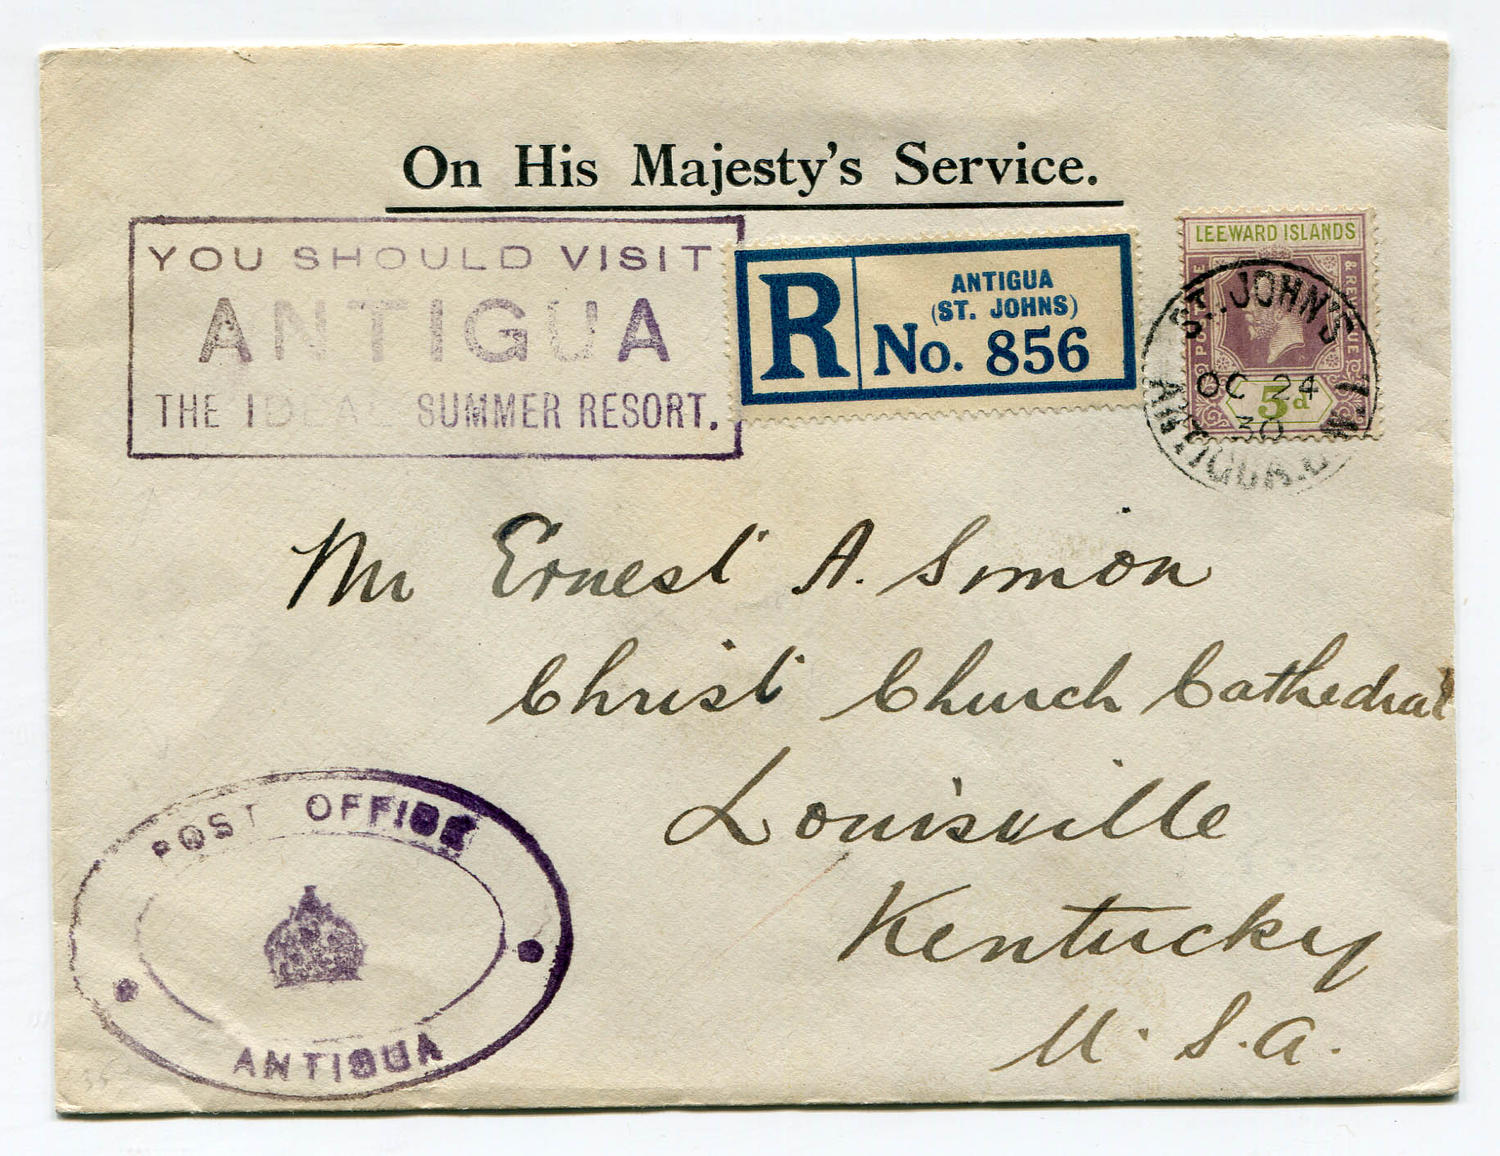 On His Majesty's Service.
YOU SHOULD VISIT
ANTIGUA
THE IDEAL SUMMER RESORT.
R
ANTIGUA
(ST. JOHNS)
No. 856
LEEWARD ISLANDS
POSTAGE
& REVENUE
5d
ST. JOHN'S
OC 24
30
ANTIGUA. B.W.I.
Mr Ernest A. Simon
Christ Church Cathedral
Louisville
Kentucky
U.S.A.
POST OFFICE
ANTIGUA